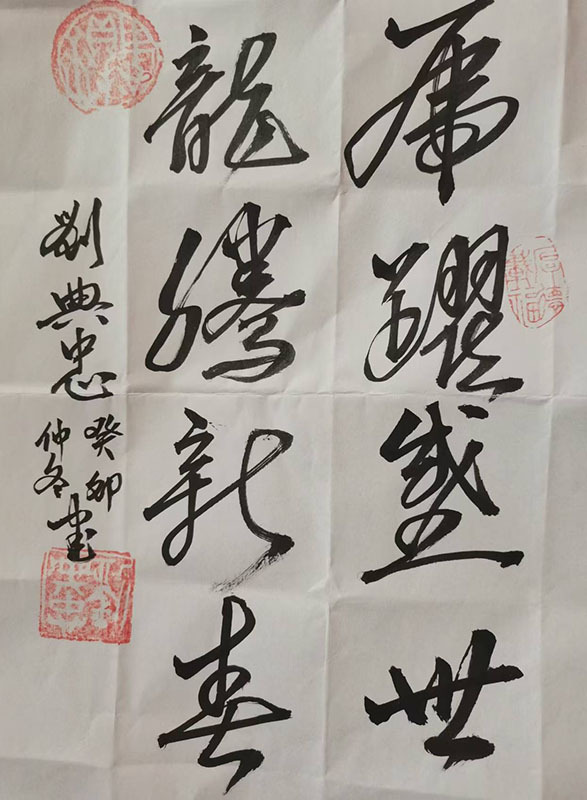 虎躍盛世
龍騰新春
劉典忠
癸卯
仲冬書
厚德
載福